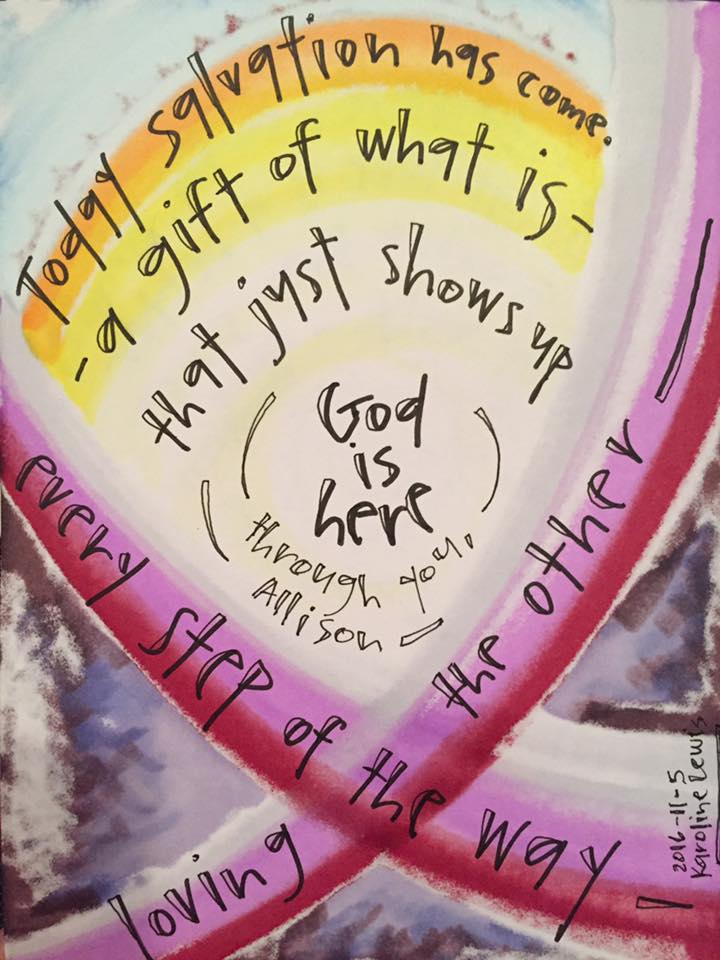 Today salvation has come.
- a gift of what is -
that just shows up
God
is
here
through you,
Allison
every step of the way
loving the other
2016-11-5
Karoline Lewis